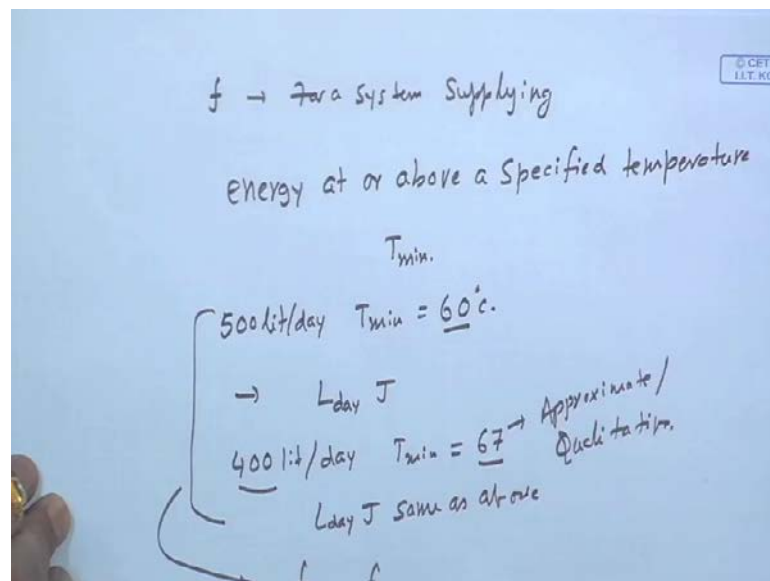 © CET
I.I.T. KG
f → For a System Supplying
energy at or above a Specified temperature
Tmin.
500 lit/day Tmin = 60°c.
→ Lday J
400 lit/day Tmin = 67 → Approximate/
Qualitative.
Lday J same as above